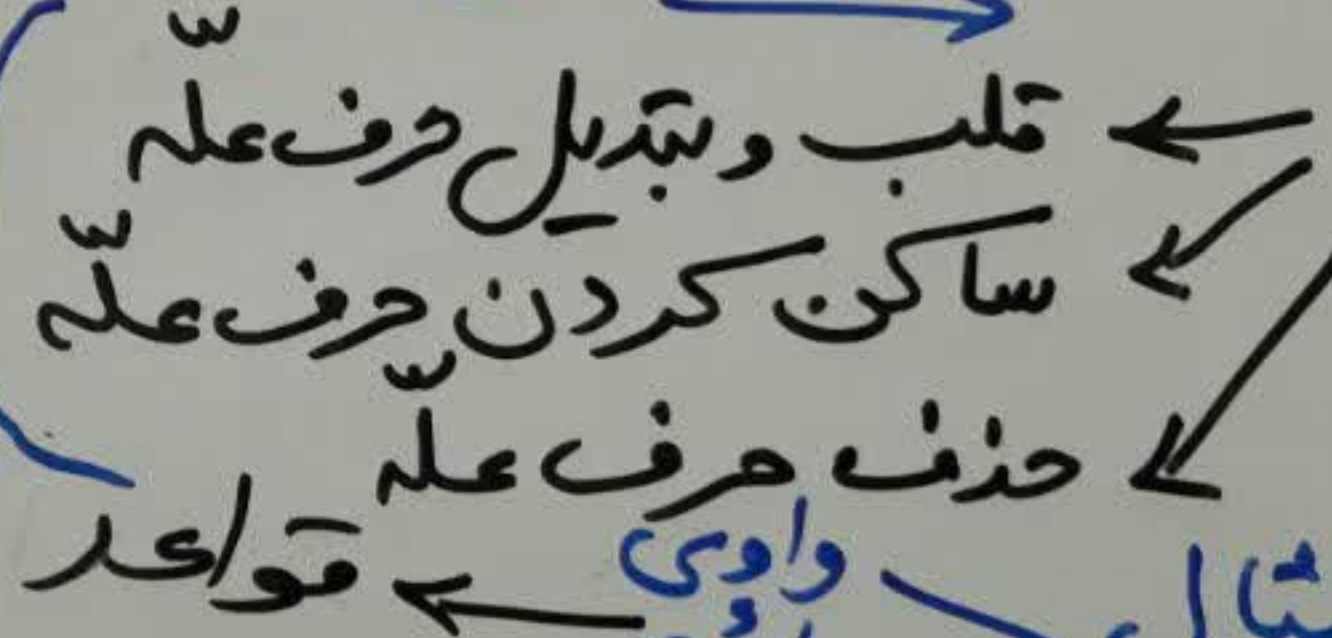 قلب و تبدیل حرف علّه
ساکن کردن حرف علّه
حذف حرف علّه
واوی
قواعد